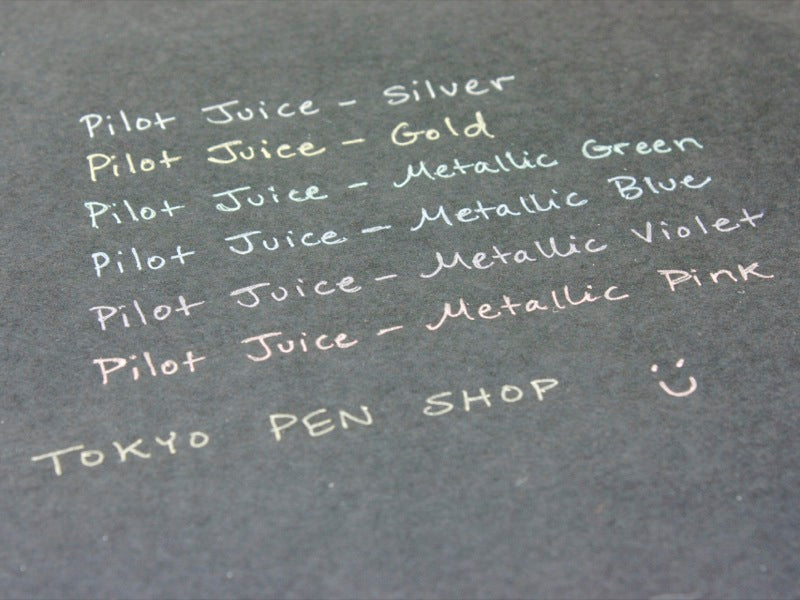 Pilot Juice - Silver
Pilot Juice - Gold
Pilot Juice - Metallic Green
Pilot Juice - Metallic Blue
Pilot Juice - Metallic Violet
Pilot Juice - Metallic Pink
TOKYO PEN SHOP